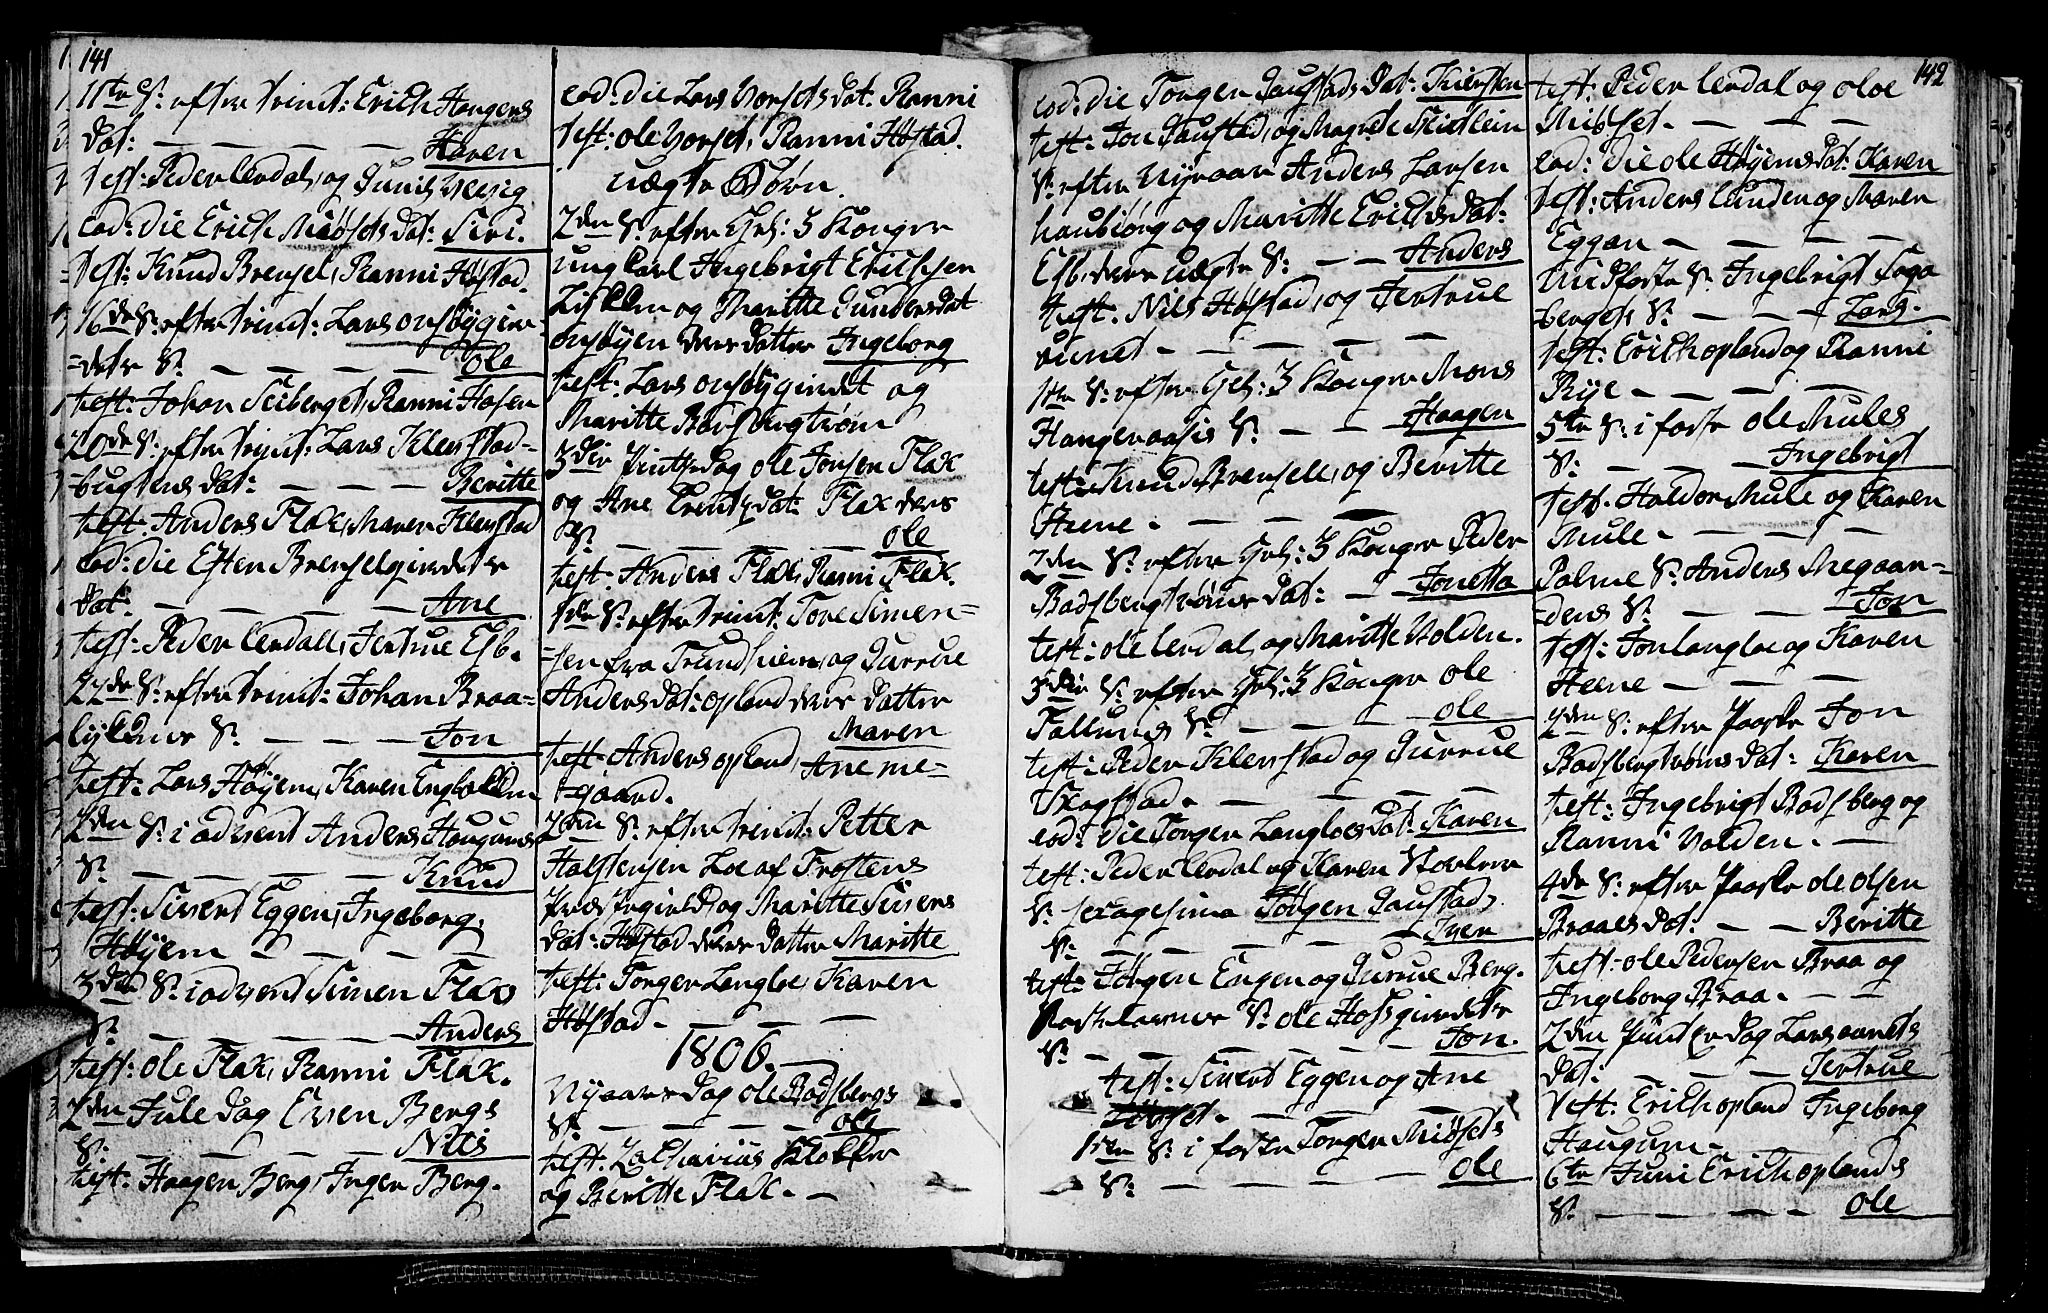 141
11te S: efter trinit: Erich Haugens
dat: — — — — — Karen
test: Peder Lerdal, og Gunil
eod: die Erich Miøsets dat: Siri.
test: Knud Brensel, Ranni Høstad.
16de S: efter trinit: Lars onsøygin-
dete S: — — — — Ole
test: Johan Seiberget, Ranni Hosen
20de S: efter trinit: Lars Klefstad-
bugtens dat: — — — Beritte
test: Anders Flax, Maren Klefstad
eod: die Esten Brenselgirdets
dat: — — — — Ane
test: Peder Lerdall, Jertrue Esb.
22de S: efter trinit: Johan Braa-
S: — — — Jon
test: Lars Høyem, Karen
2den S: i advent Anders Haugums
S: — — — — Knud
test: Sivert Eggen, Ingeborg
Høyem — — — —
3die S: i advent Simen Flax
S: — — — — Anders
test: Ole Flak, Ranni Flak.
2den Juledag Even Bergs
S: — — — — Nils
test: Haagen Berg, Inger Berg.
eod: die Lars Vorsets dat: Ranni
test: ole Vorset, Ranni Høstad.
uægte Børn.
2den S: efter Hel: 3 Konger
ungkarl Ingebrigt Erichsen
og Maritte Gundersdat
onsøyen deres datter Ingeborg
test: Lars onsøygirdet og
Maritte Badsbergtrøen
3die Pintsdag ole Jonsen Flak
og Ane Erentsdat: Flax ders
S: — — — — ole
test: Anders Flax, Ranni Flak.
1de S: efter trinit: Tore Simen-
sen fra Trundhiem, og Gurrue
Andersdat: opland deres datter
Maren
test: Anders opland, Ane Me-
gaard.
2den S: efter trinit: Petter
Halstensen Loe af Frostens
og Maritte Sivers
dat: Høstad deres datter Maritte
test: Torger Langloe, Karen
Høstad. — — —
1806.
Nyaars dag ole Badsbergs
S: — — — — ole
test. Zacharius Klokker
og Beritte Flak. —
142
eod: die Torgen Gaustads dat: Kiersten
test: Jon Gaustad, og Magrete
S: efter Nyeaar Anders Larsen
Haubiørg og Maritte Erichsdat:
Esb, deres uægte S: — — Anders
test. Nils Høstad, og Jertrue
— — — —
1ste S: efter Hel: 3 Konger Mons
Haugenaasis S: — — Haagen
test: Knud Brensell, og Beritte
Heene. — — —
2den S: efter Hel: 3 Konger Peder
Badsbergtrøens dat: — Jonetta
test: ole Lerdal, og Maritte Volden.
3die S: efter Hel: 3 Konger ole
Follunds S: — — — ole
test: Peder Klefstad og Gurrue
Skogstad. — — — —
eod: die Torgen Langloes dat: Karen
test: Peder Lerdal og Karen
S: sexagesima Jørgen Gaustads
S: — — — — Iver
test: Jørgen Engen og Gurrue Berg.
Fastelavns S: ole Hofsgirdets
S: — — — — Jon.
test: Sivert Eggen og Ane
— — —
1ste S: i faste Torgen Miøsets
S: — — — — ole
test: Peder Lerdal og oloe
Miøset. — — —
eod: die ole Høyems dat: Karen
test: Anders Lunden og Maren
Eggan — — — —
Midfaste S: Ingebrigt Soga
bergets S: — — — Lars.
test: Erich opland og Ranni
Rije — — — —
5te S: i faste ole Mules
S: — — — Ingebrigt
test. Haldor Mule og Karen
Mule. — — — —
Palme S: Anders Megaar-
dens S: — — — Jon
test: Jon Langloe og Karen
Heene — — —
2den S: efter Paaske Jon
Badsbergtrøens dat: Karen
test: Ingebrigt Badsberg og
Ranni Volden. —
4de S: efter Paaske ole olsen
Braaes dat: — — Beritte
test: ole Pedersen Braa og
Ingeborg Braa. — —
2den Pintsedag Lars
dat: — — — Jertrue
test: Erich opland Ingeborg
Haugum.
6te Juni Erich oplands
S: — — — — ole